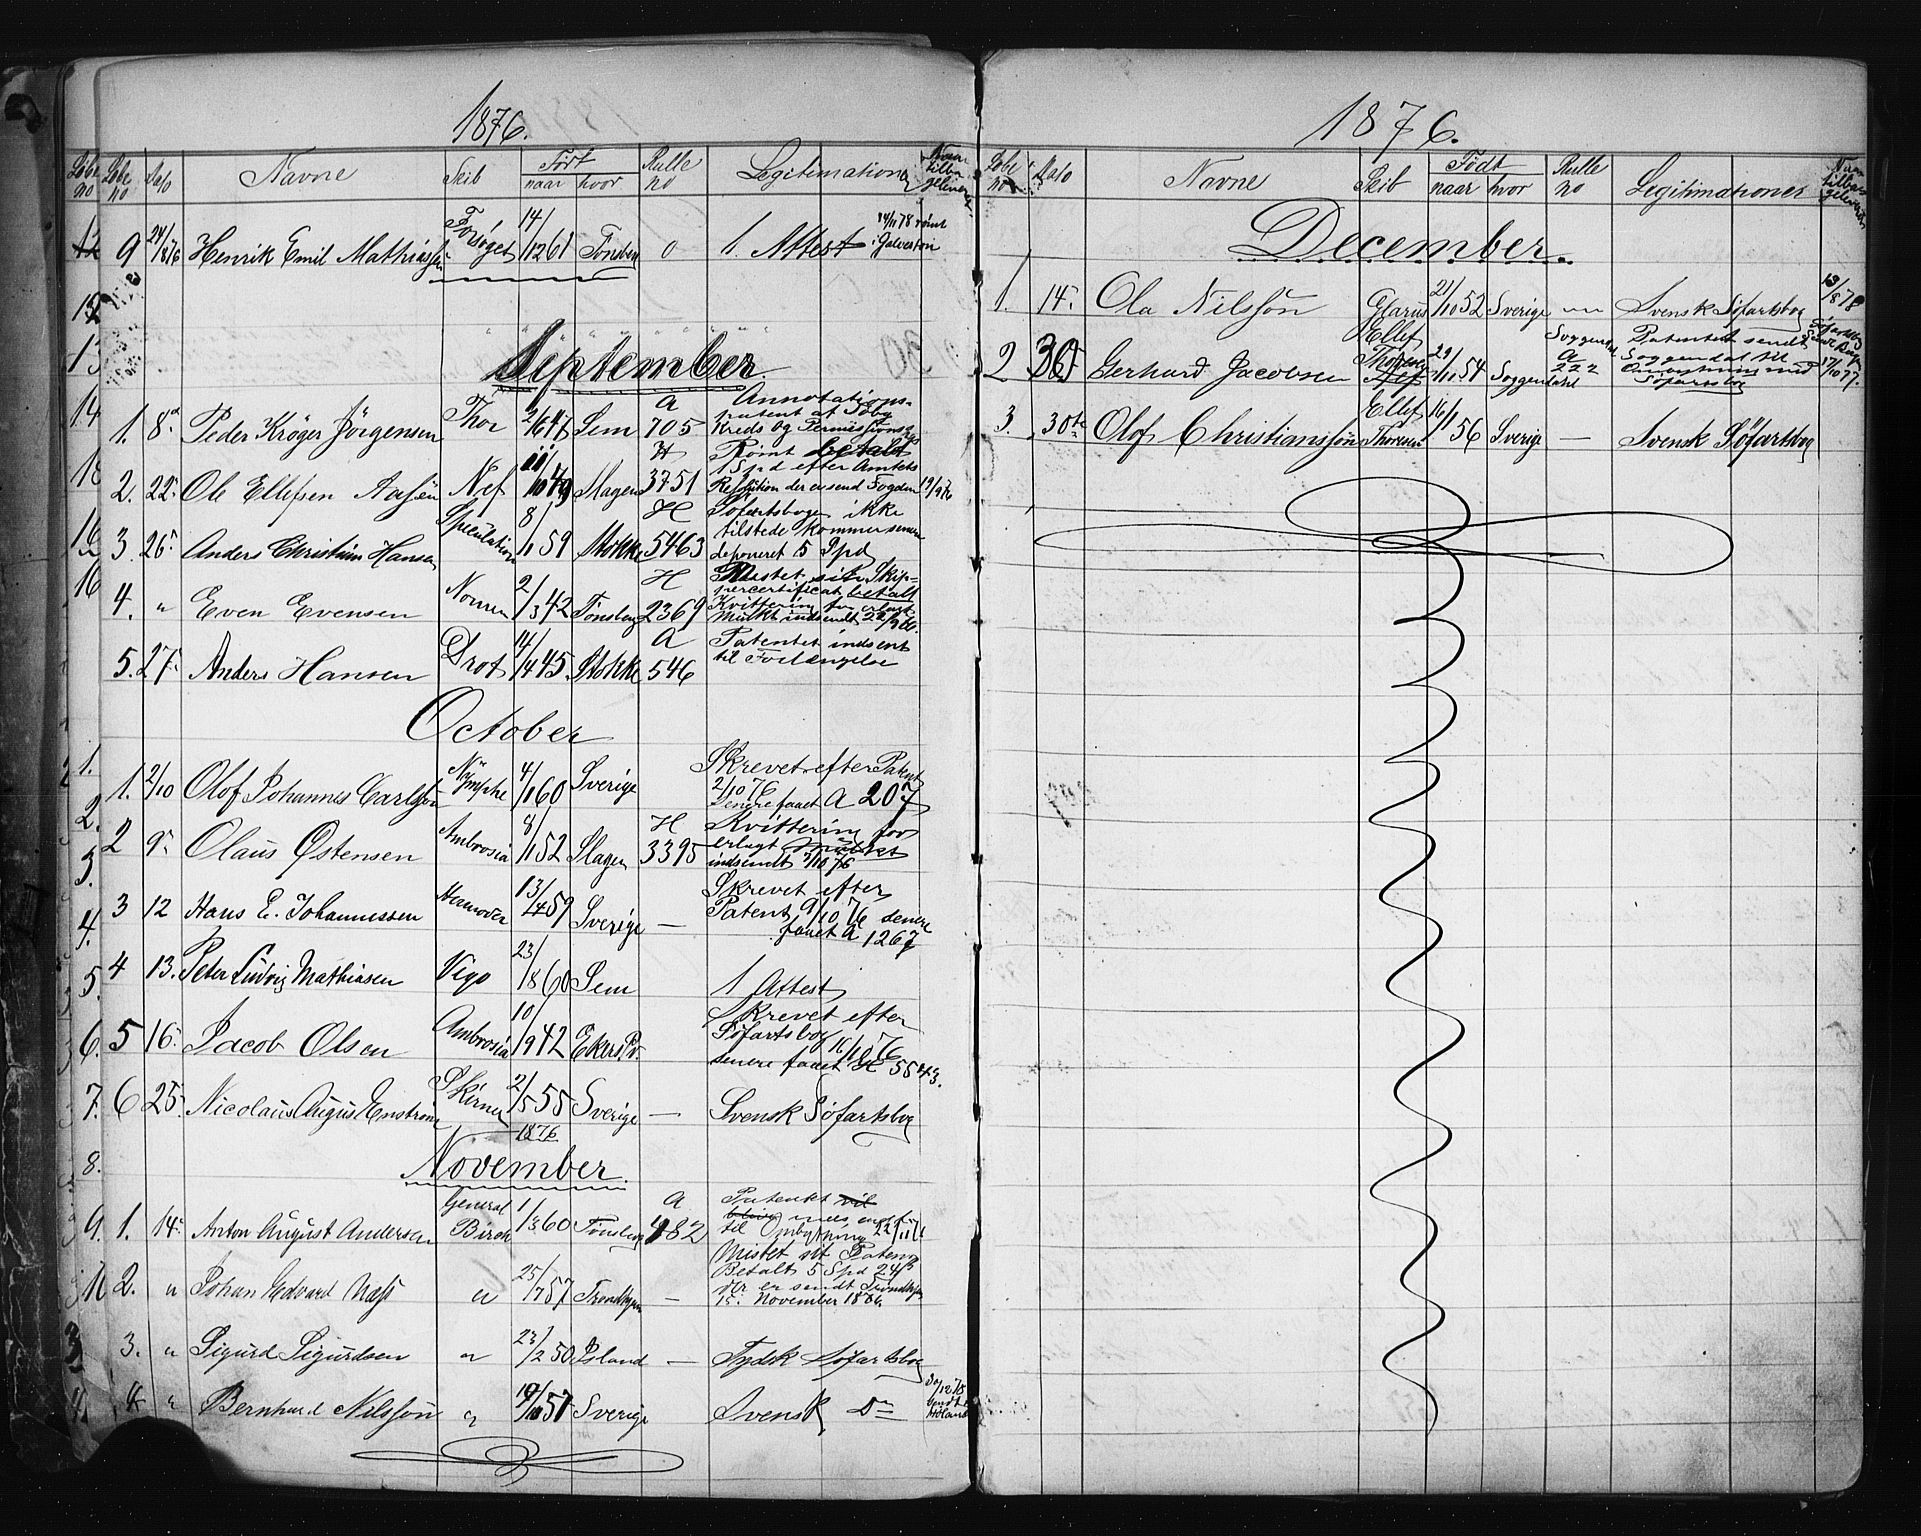 1876.
Løbe no Løbe no Dato Navne Skib Født naar hvor Rulle no Legitimationer Naar tilbageleveret
12 9 24/8 76 Henrik Emil Mathiassen Forsøget 14/12 61 Tønsberg 0 1. Attest 14/11 78 rømt i Galveston
September
1. 8de Peder Krøger Jörgensen Thor 2/6 47 Sem A 705 Annotations-
patent af Söby
Kreds og Permissions
2. 22 Ole Ellefsen Aasen Nef 10 49 Slagen H 3751 Rømt betalt
1 Spd efter Amtets
Resolution der er send Fogden 19/9 76
3 26 Anders Christian Hansen Speculation 8/11 59 Stokke H 5463 Söfartsbogen ikke
tilstede kommer senere
deponeret 5 Spd
4. " Even Evensen Nornen 2/3 42 Tønsberg H 2369 Mistet sit Skip-
percertificat betalt
Kvittering for erlagt
Mulkt indsendt 22/9 76.
5. 27 Anders Hansen Drot 14/4 45. Stokke A 546 Patentet indsent
til Forlængelse
October
1. 2/10 Olof Johannes Carlsson Nymphe 4/1 60 Sverige Skrevet efter Patent
2/10 76
Senere faaet A 207
2 9 Olaus Østensen Ambrosia 8/11 52 Slagen H 3395 Kvittering for
erlagt Mulkt
indsendt 9/10 76
3 12 Hans E. Johannessen Hannover 13/4 59 Sverige — Skrevet efter
Patent 9/10 76 senere
faaet A 1267
4 13. Peter Ludvig Mathiasen Vigo 23/1 860 Sem 1 Attest
5 16 Jacob Olsen Ambrosia 10/9 42 Ekers Pr. Skrevet efter
Söfartsbog 16/10 76
senere faaet H 5543.
7. 6 25. Nicolaus August Enström Skirner 2/5 55 Sverige — Svensk Söfartsbog
1876
November.
9. 1. 14 Anton August Andersen General Birch 1/3 60 Tønsberg A 182 Patentet vil
blive indsendt
til Ombytning 22/11 76
2. " Johan Edvard Næss " 25/7 57 Trondhjem — Mistet sit Patent
Betalt 5 Spd 24 ß
der er sendt Trondhjem
15 November 1876.
3. " Sigurd Sigurdsen " 23/2 50 Island — Tydsk Söfartsbog
4 " Bernhard Nilsson " 19/10 57 Sverige Svensk Do 30/12 78 sendt
1876.
Løbe no Dato Navne Skib Født naar hvor Rulle no Legitimationer Naar tilbageleveret
December.
1. 14 Ola Nilsson Glarus 21/10 52 Sverige — Svensk Söfartsbog 13/8 78
2 30 Gerhard Jacobsen Ellef Thoresen 29/10 54 Soggendahl Soggendal A 222 Patentet sendt
Soggendal til
Ombytning med
Söfartsbog 17/10 77.
3. 30te Olof Christiansson Ellef Thoresen 16/1 56 Sverige — Svensk Söfartsbog